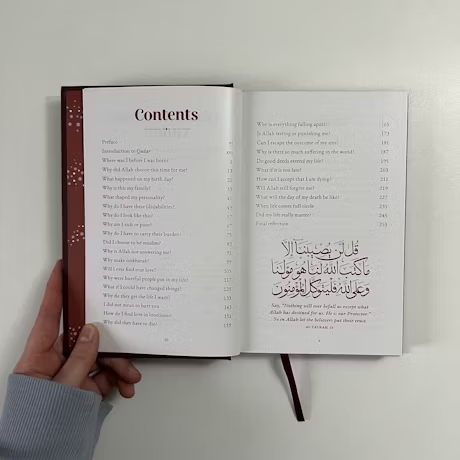 Contents
Preface
Introduction to Qadar
Where was I before I was born?
Why did Allah choose this time for me?
What happened on my birth day?
Why is this my family?
What shaped my personality?
Why do I have these (dis)abilities?
Why do I look like this?
Why am I sick or poor?
Why do I have to carry their burden?
Did I choose to be muslim?
Why is Allah not answering me?
Why make istikhara?
Will I ever find true love?
Why were hurtful people put in my life?
What if I could have changed things?
Why do they get the life I want?
Am I too late?
How do I find love in loneliness?
Why did they have to die?
Why is everything falling apart?
Is Allah testing or punishing me?
Can I escape the outcome of my sins?
Why is there so much suffering in the world?
Do good deeds extend my life?
What if it is too late?
How can I accept that I am dying?
Will Allah forgive me?
What will the day of my death be like?
When life comes full circle
Did my life really matter?
Final reflection
قُل لَّن يُصِيبَنَا إِلَّا
مَا كَتَبَ اللَّهُ لَنَا هُوَ مَوْلَانَا
وَعَلَى اللَّهِ فَلْيَتَوَكَّلِ الْمُؤْمِنُونَ
Say, "Nothing will ever befall us except what
Allah has destined for us. He is our Protector."
So in Allah let the believers put their trust.